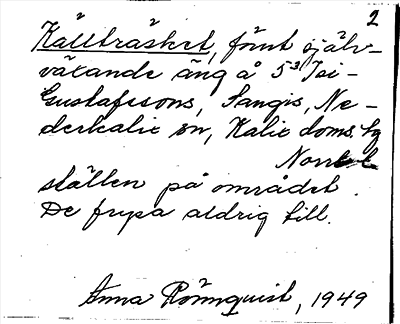 2
Källträsket, förut själv-
vätande äng å 5³ Isi-
Gustafssons, Sangis, Ne-
derkalix sn, Kalix doms. sg
Norr
ställen på området.
De frysa aldrig till.
Anna Rönnquist, 1949